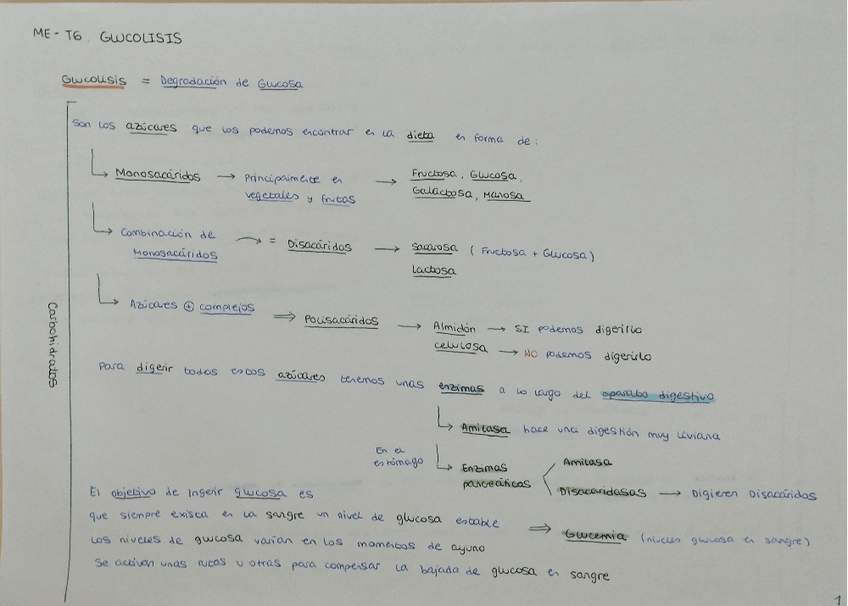 ME - T6 GLUCOLISIS
Glucolisis = Degradación de Glucosa
Son los azúcares que los podemos encontrar en la dieta en forma de:
Monosacáridos → Principalmente en → Fructosa, Glucosa,
vegetales y frutas Galactosa, Manosa
Combinación de = Disacáridos → Sacarosa (Fructosa + Glucosa)
Monosacáridos Lactosa
Azúcares ⊕ complejos ⇒ Polisacáridos → Almidón → SI podemos digerirlo
celulosa → NO podemos digerirlo
Carbohidratos
Para digerir todos estos azúcares tenemos unas enzimas a lo largo del aparato digestivo
Amilasa hace una digestión muy liviana
En el
estómago
Enzimas
pancreáticas
Amilasa
Disacaridasas → Digieren Disacáridos
El objetivo de ingerir glucosa es
que siempre exista en la sangre un nivel de glucosa estable ⇒ Glucemia (niveles glucosa en sangre)
Los niveles de glucosa varían en los momentos de ayuno
Se activan unas rutas u otras para compensar la bajada de glucosa en sangre
1